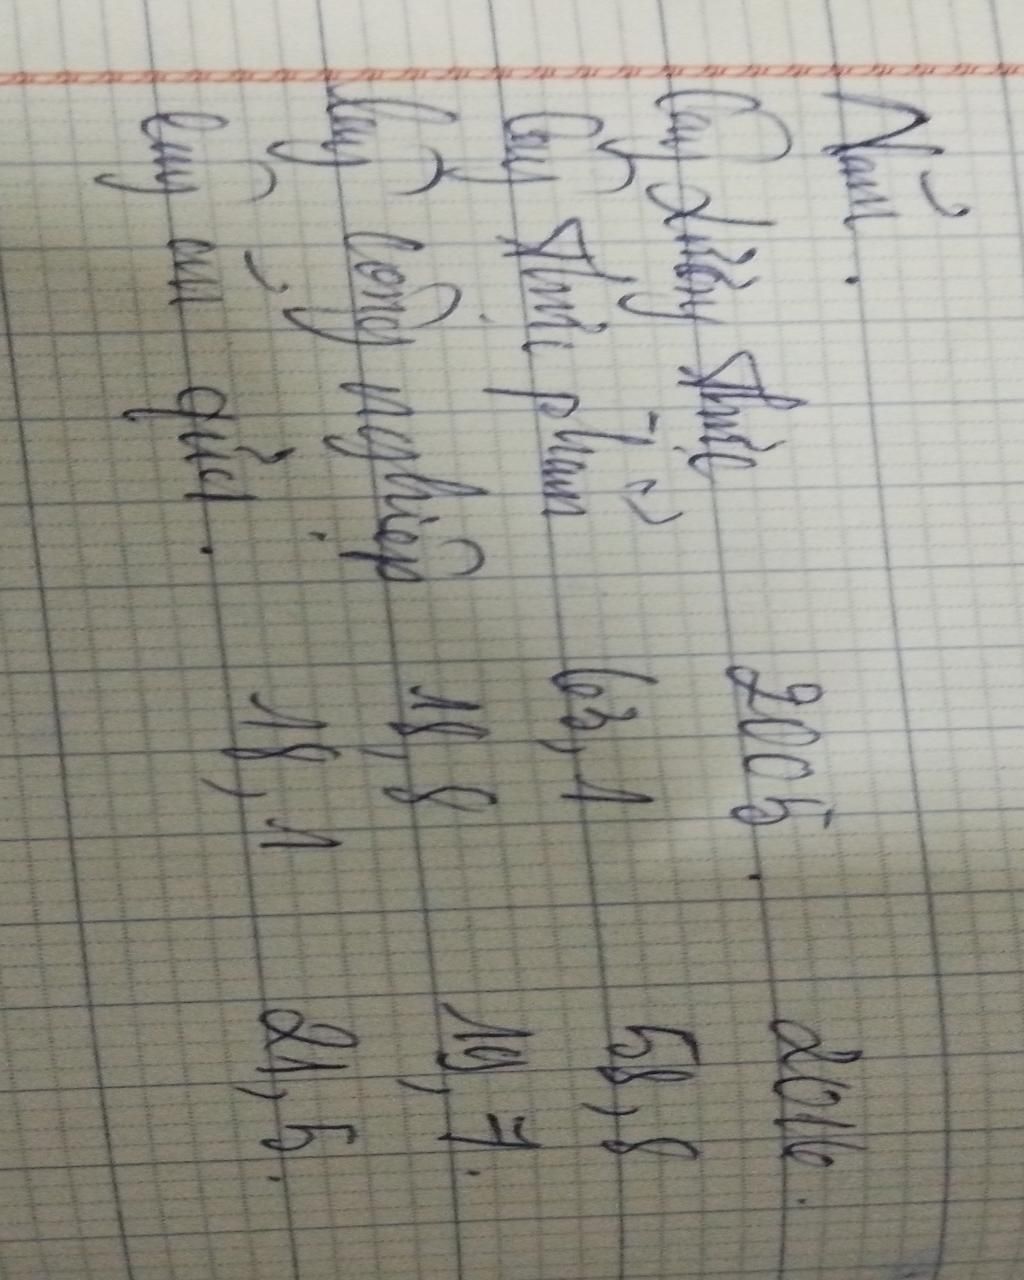 Năm.
Cây lương thực 2005. 2016.
Cây thực phẩm 63,1 58,8
Cây công nghiệp 18,8 19,7.
Cây ăn quả. 18,1 21,5.